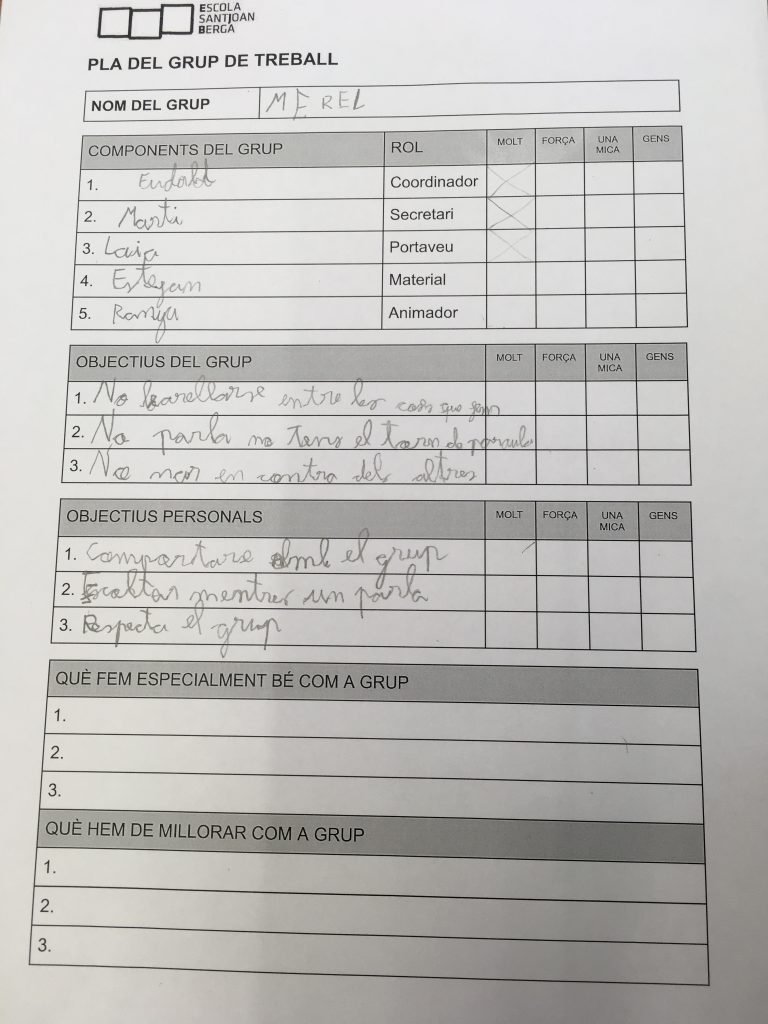 ESCOLA
SANTJOAN
BERGA
PLA DEL GRUP DE TREBALL
NOM DEL GRUP MEREL
COMPONENTS DEL GRUP ROL MOLT FORÇA UNA MICA GENS
1. Eudald Coordinador
2. Marti Secretari
3. Laia Portaveu
4. Estegan Material
5. Ranya Animador
OBJECTIUS DEL GRUP MOLT FORÇA UNA MICA GENS
1. No barellarse entre les coses que fem
2. No parla no tens el torn de
3. No nar en contra dels altres
OBJECTIUS PERSONALS MOLT FORÇA UNA MICA GENS
1. Comportarse amb el grup
2. Escoltar mentres un parla
3. Respecta el grup
QUÈ FEM ESPECIALMENT BÉ COM A GRUP
1.
2.
3.
QUÈ HEM DE MILLORAR COM A GRUP
1.
2.
3.